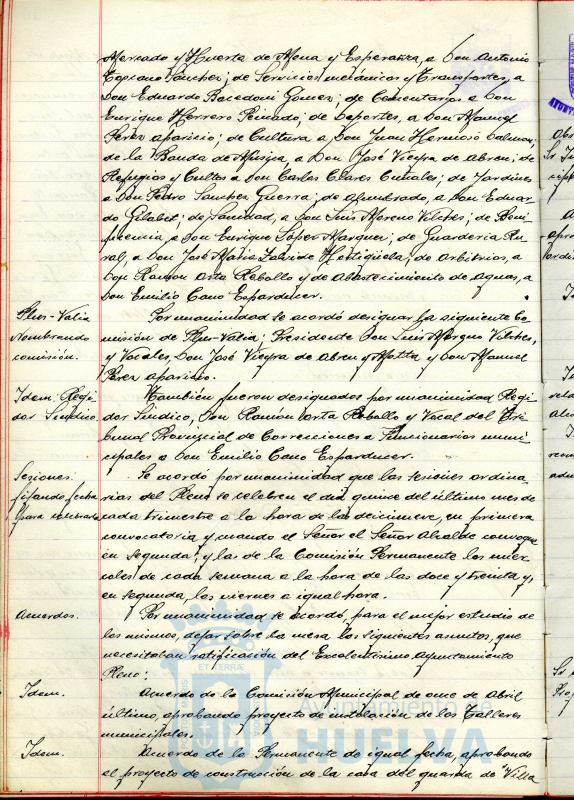 Mercado y Huerta de Mena y Esperanza, a Don Antonio
Egeano Sanchez; de Servicios mecánicos y Transportes, a
Don Eduardo Bacedoni Gomez; de Cementerios a Don
Enrique Herrero Penado; de Deportes, a Don Manuel
Perez Aparicio; de Cultura a Don Juan Hermoso
de la Banda de Musica, a Don José Vieyra de Abreu; de
Refugios y Cultos a Don Carlos Clares; de Jardines
a Don Pedro Sanchez Guerra; de Alumbrado, a Don Eduar-
do Gilabet; de Sanidad, a Don Luis Moreno Vilches; de Beni-
ficencia, a Don Enrique Lopez Marquez; de Guarderia Ru-
ral, a Don José Maria; de Arbitrios, a
Don Ramón Orta Rebollo y de Abastecimiento de Aguas, a
Don Emilio Cano Esparducer.
Plus-Valia
Nombrando
comisión.
Por unanimidad se acordó designar la siguiente Co-
misión de Plus-Valia; Presidente Don Luis Moreno Vilches,
y Vocales, Don José Vieyra de Abreu y Motta y Don Manuel
Perez Aparicio.
Idem. Regi-
dor Sindico.
También fueron designados por unanimidad Regi-
dor Sindico, Don Ramón Orta Rebollo y Vocal del Tri-
bunal Provincial de Correcciones a Funcionarios muni-
cipales a Don Emilio Cano Esparducer.
Sesiones:
fijando fecha
para celebrarlas
Se acordó por unanimidad que las sesiones ordina-
rias del Pleno se celebren el dia quince del último mes de
cada trimestre a la hora de las diecinueve, en primera
convocatoria y cuando el Señor el Señor Alcalde convoque
en segunda; y la de la Comisión Permanente los miér-
coles de cada semana a la hora de las doce y treinta y,
en segunda, los viernes a igual hora.
Acuerdos.
Por unanimidad se acordó, para el mejor estudio de
los mismos, dejar sobre la mesa los siguientes asuntos, que
necesitaban ratificación del Excelentísimo Ayuntamiento
Pleno:
Idem.
Acuerdo de la Comisión Municipal de once de Abril
último, aprobando proyecto de instalación de los Talleres
municipales.
Idem.
Acuerdo de la Permanente de igual fecha, aprobando
el proyecto de construcción de la casa del guarda de "Villa
ET TERRÆ
Ayuntamiento de
HUELVA